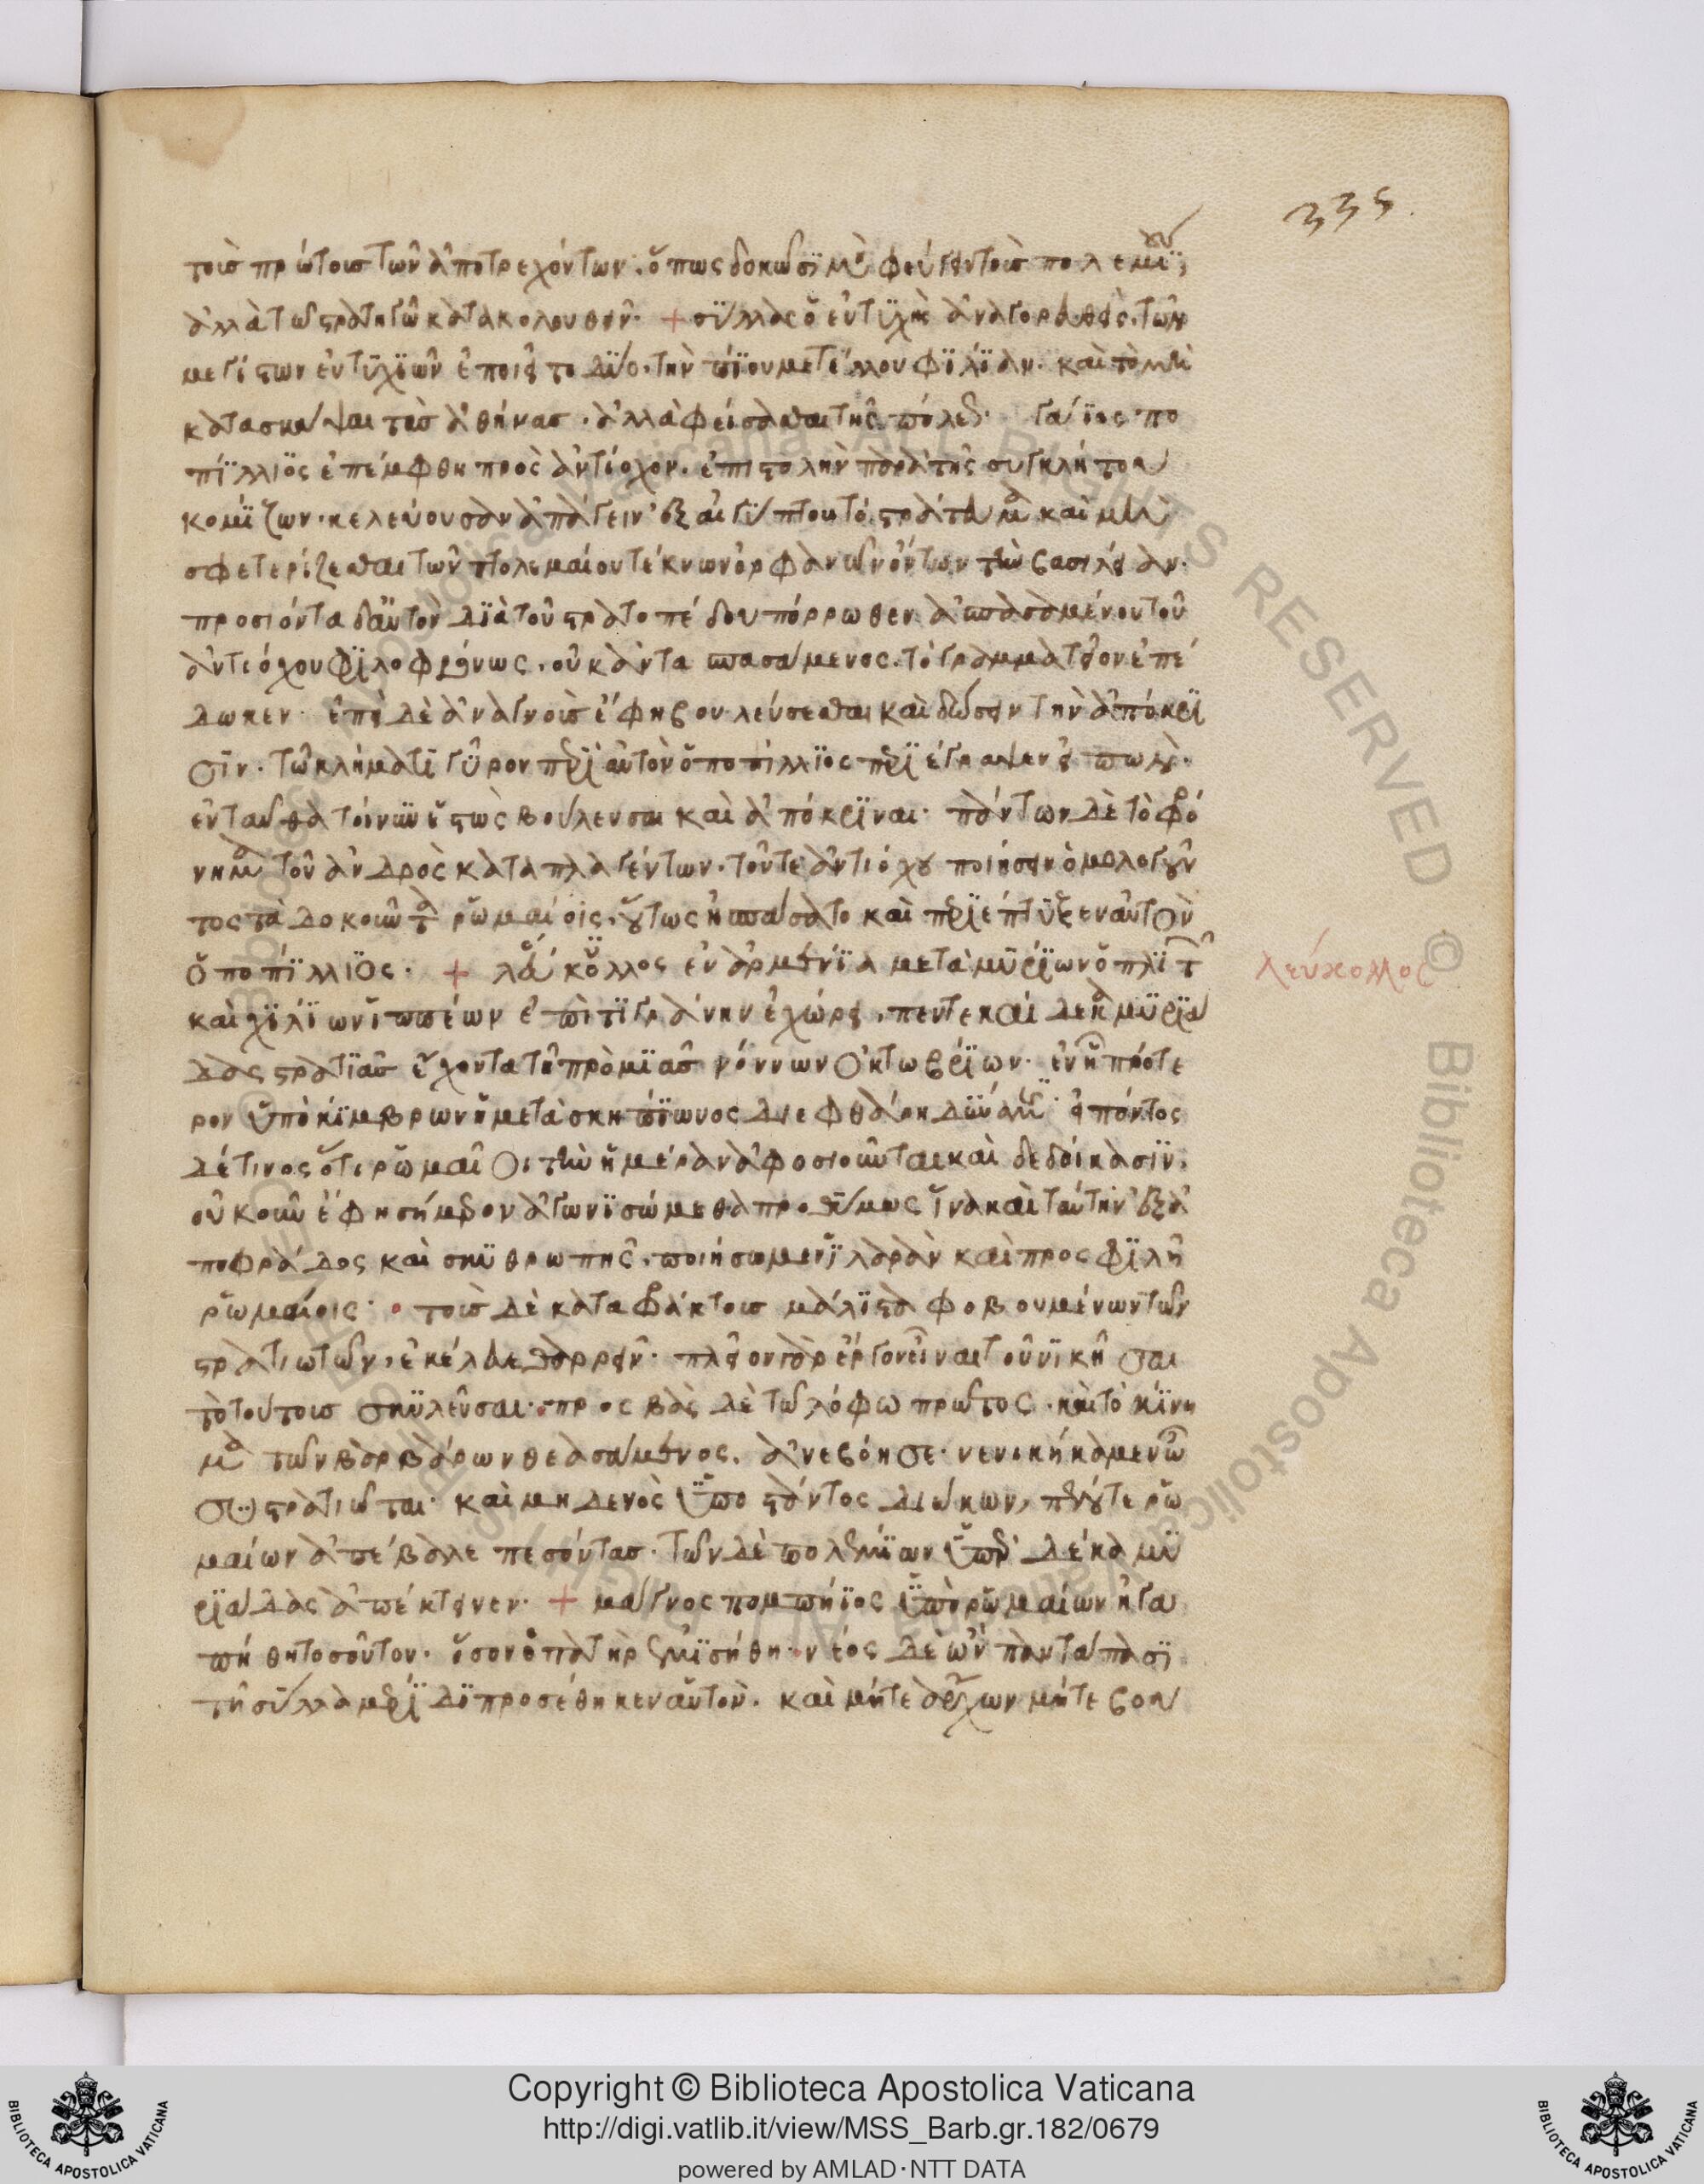 335.
τοῖσ πρώτοισ τῶν ἀποτρεχόντων. ὅπως δοκῶσϊ μὴ φεύγειν τοῖσ πολεμΐοις,
ἀλλὰ τῶ στρατηγῶ κατακολουθεῖν. + σΰλλας ὁ εὐτϋχὴς ἀναγορευθεὶς. τῶν
μεγίστων εὐτϋχϊῶν ἐποιεῖτο δΰο. τὴν πΐου μετέλλου φϊλΐαν. καὶ τὸ μὴ
κατασκάψαι τὰσ ἀθήνασ. ἀλλὰ φείσασθαι τῆς πόλεως. γάϊος πο
πΐλλιος ἐπέμφθη πρὸς ἀντίοχον. ἐπιστολὴν παρὰ τῆς συγκλήτου
κομΐζων. κελεύουσαν ἀπάγειν ἐξ αἰγΰπτου τὸ στράτευμα καὶ μὴ
σφετερίζεσθαι τῶν πτολεμαίου τέκνων ὀρφανῶν ὄντων τὴν βασιλείαν.
προσιόντα δ' αὐτὸν δϊὰ τοῦ στρατοπέδου πόρρωθεν ἀσπασαμένου τοῦ
ἀντιόχου φϊλοφρόνως. οὐκ ἀντασπασάμενος. τὸ γραμματεῖον ἐπέ
δωκεν. ἐπεὶ δὲ ἀναγνοὺς ἔφη βουλεύσεσθαι καὶ δώσειν τὴν ἀπόκρϊ
σϊν. τῶ κλήματϊ γῦρον περϊ αὐτὸν ὁ ποπίλλϊος περϊέγραψεν εἰπὼν.
ἐνταῦθα τοίνϋν ἑστὼς βούλευσαι καὶ ἀπόκρϊναι. πάντων δὲ τὸ φρό
νημα τοῦ ἀνδρὸς καταπλαγέντων. τοῦ τε ἀντιόχου ποιήσειν ὁμολογοῦν
τος τὰ δοκοῦντα ῥωμαίοις. οὕτως ἠσπάσατο καὶ περϊέπτϋξεν αὐτὸν
ὁ ποπΐλλϊος. + λεύκολλος ἐν ἀρμενΐα μετὰ μϋρΐων ὁπλϊτῶν
καὶ χϊλΐων ἱππέων ἐπὶ τϊγράνην ἐχώρει. πεντεκαίδεκα μϋρϊά
δας στρατϊᾶσ ἔχοντα τῆ πρὸ μϊᾶσ νόννων ὀκτωβρΐων. ἐν ἧ πρότε
ρον ὑπὸ κΐμβρων ἡ μετὰ σκηπΐωνος διεφθάρη δΰναμις. εἰπόντος
δέ τινος ὅτι ῥωμαῖοι τὴν ἡμέραν ἀφοσιοῦνται καὶ δεδοίκασϊν.
οὐκοῦν ἔφη σήμερον ἀγωνϊσώμεθα προθΰμως ἵνα καὶ ταύτην ἐξ ἀ
ποφράδος καὶ σκϋθρωπῆς. ποιήσωμεν ἱλαρὰν καὶ προσφϊλῆ
ῥωμαίοις. τοῖσ δὲ καταφράκτοισ μάλϊστα φοβουμένων τῶν
στρατιωτῶν. ἐκέλευε θαρρεῖν. πλεῖον γὰρ ἔργον εἶναι τοῦ νϊκῆσαι
τὸ τούτοισ σκϋλεῦσαι. προσβὰς δὲ τῶ λόφω πρῶτος. καὶ τὸ κΐνη
μα τῶν βαρβάρων θεασάμενος. ἀνεβόησε. νενικήκαμεν ὦ
συστρατιῶται. καὶ μηδενὸς ὑποστάντος διώκων, πέντε ῥω
μαίων ἀπέβαλε πεσόντασ. τῶν δὲ πολεμΐων ὑπὲρ δέκα μϋ
ρϊάδας ἀπέκτεινεν. + μάγνος πομπήϊος ὑπὸ ῥωμαίων ἠγα
πήθη τοσοῦτον. ὅσον ὁ πατὴρ ἐμϊσήθη. νέος δὲ ὢν παντάπασϊ
τῆ σΰλλα μερΐδϊ προσέθηκεν αὑτὸν. καὶ μήτε ἄρχων μήτε βου
λεύκολλος
Copyright © Biblioteca Apostolica Vaticana
http://digi.vatlib.it/view/MSS_Barb.gr.182/0679
powered by AMLAD·NTT DATA
BIBLIOTECA APOSTOLICA VATICANA
BIBLIOTECA APOSTOLICA VATICANA